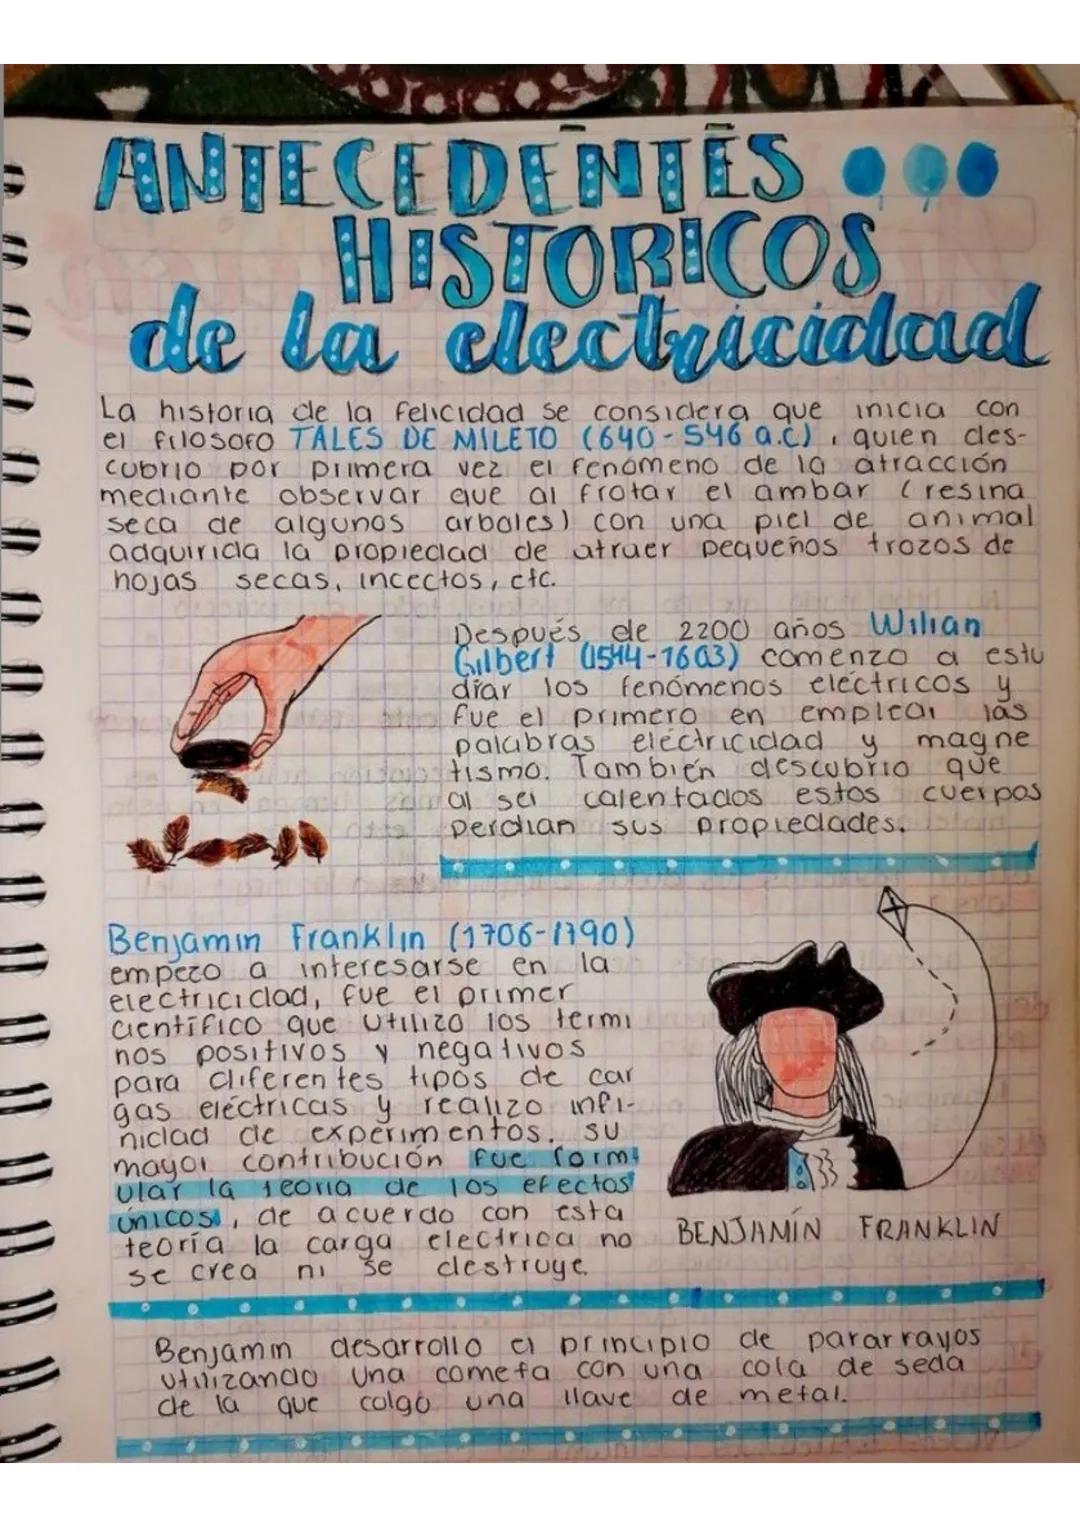 ANTECEDENTES
HISTORICOS
de la electricidad
La historia de la felicidad se considera que inicia con
el filosofo TALES DE MILETO (640-546 a.c), quien des-
cubrio por primera vez el fenómeno de la atracción
mediante observar que al frotar el ambar (resina
seca de algunos arboles) con una piel de animal
adquirida la propiedad de atraer pequeños trozos de
hojas secas, incectos, etc.
Después de 2200 años Wilian
Gilbert (1544-1603) comenzo a estu
diar los fenómenos eléctricos y
fue el primero en emplear las
palabras eléctricidad y magne
tismo. También descubrio que
al ser calentados estos cuerpos
perdian sus propiedades.
Benjamin Franklin (1706-1790)
empezo a interesarse en la
electricidad, fue el primer
científico que utilizo los termi
nos positivos y negativos
para diferentes tipos de car
gas eléctricas y realizo infi-
nidad de experimentos. su
mayor contribución fue form
ular la teoria de los efectos
únicos, de acuerdo con esta
teoría la carga electrica no
se crea ni se destruye.
BENJAMÍN FRANKLIN
Benjamin desarrollo el principio de pararrayos
utilizando una cometa con una cola de seda
de la que colgó una llave de metal.